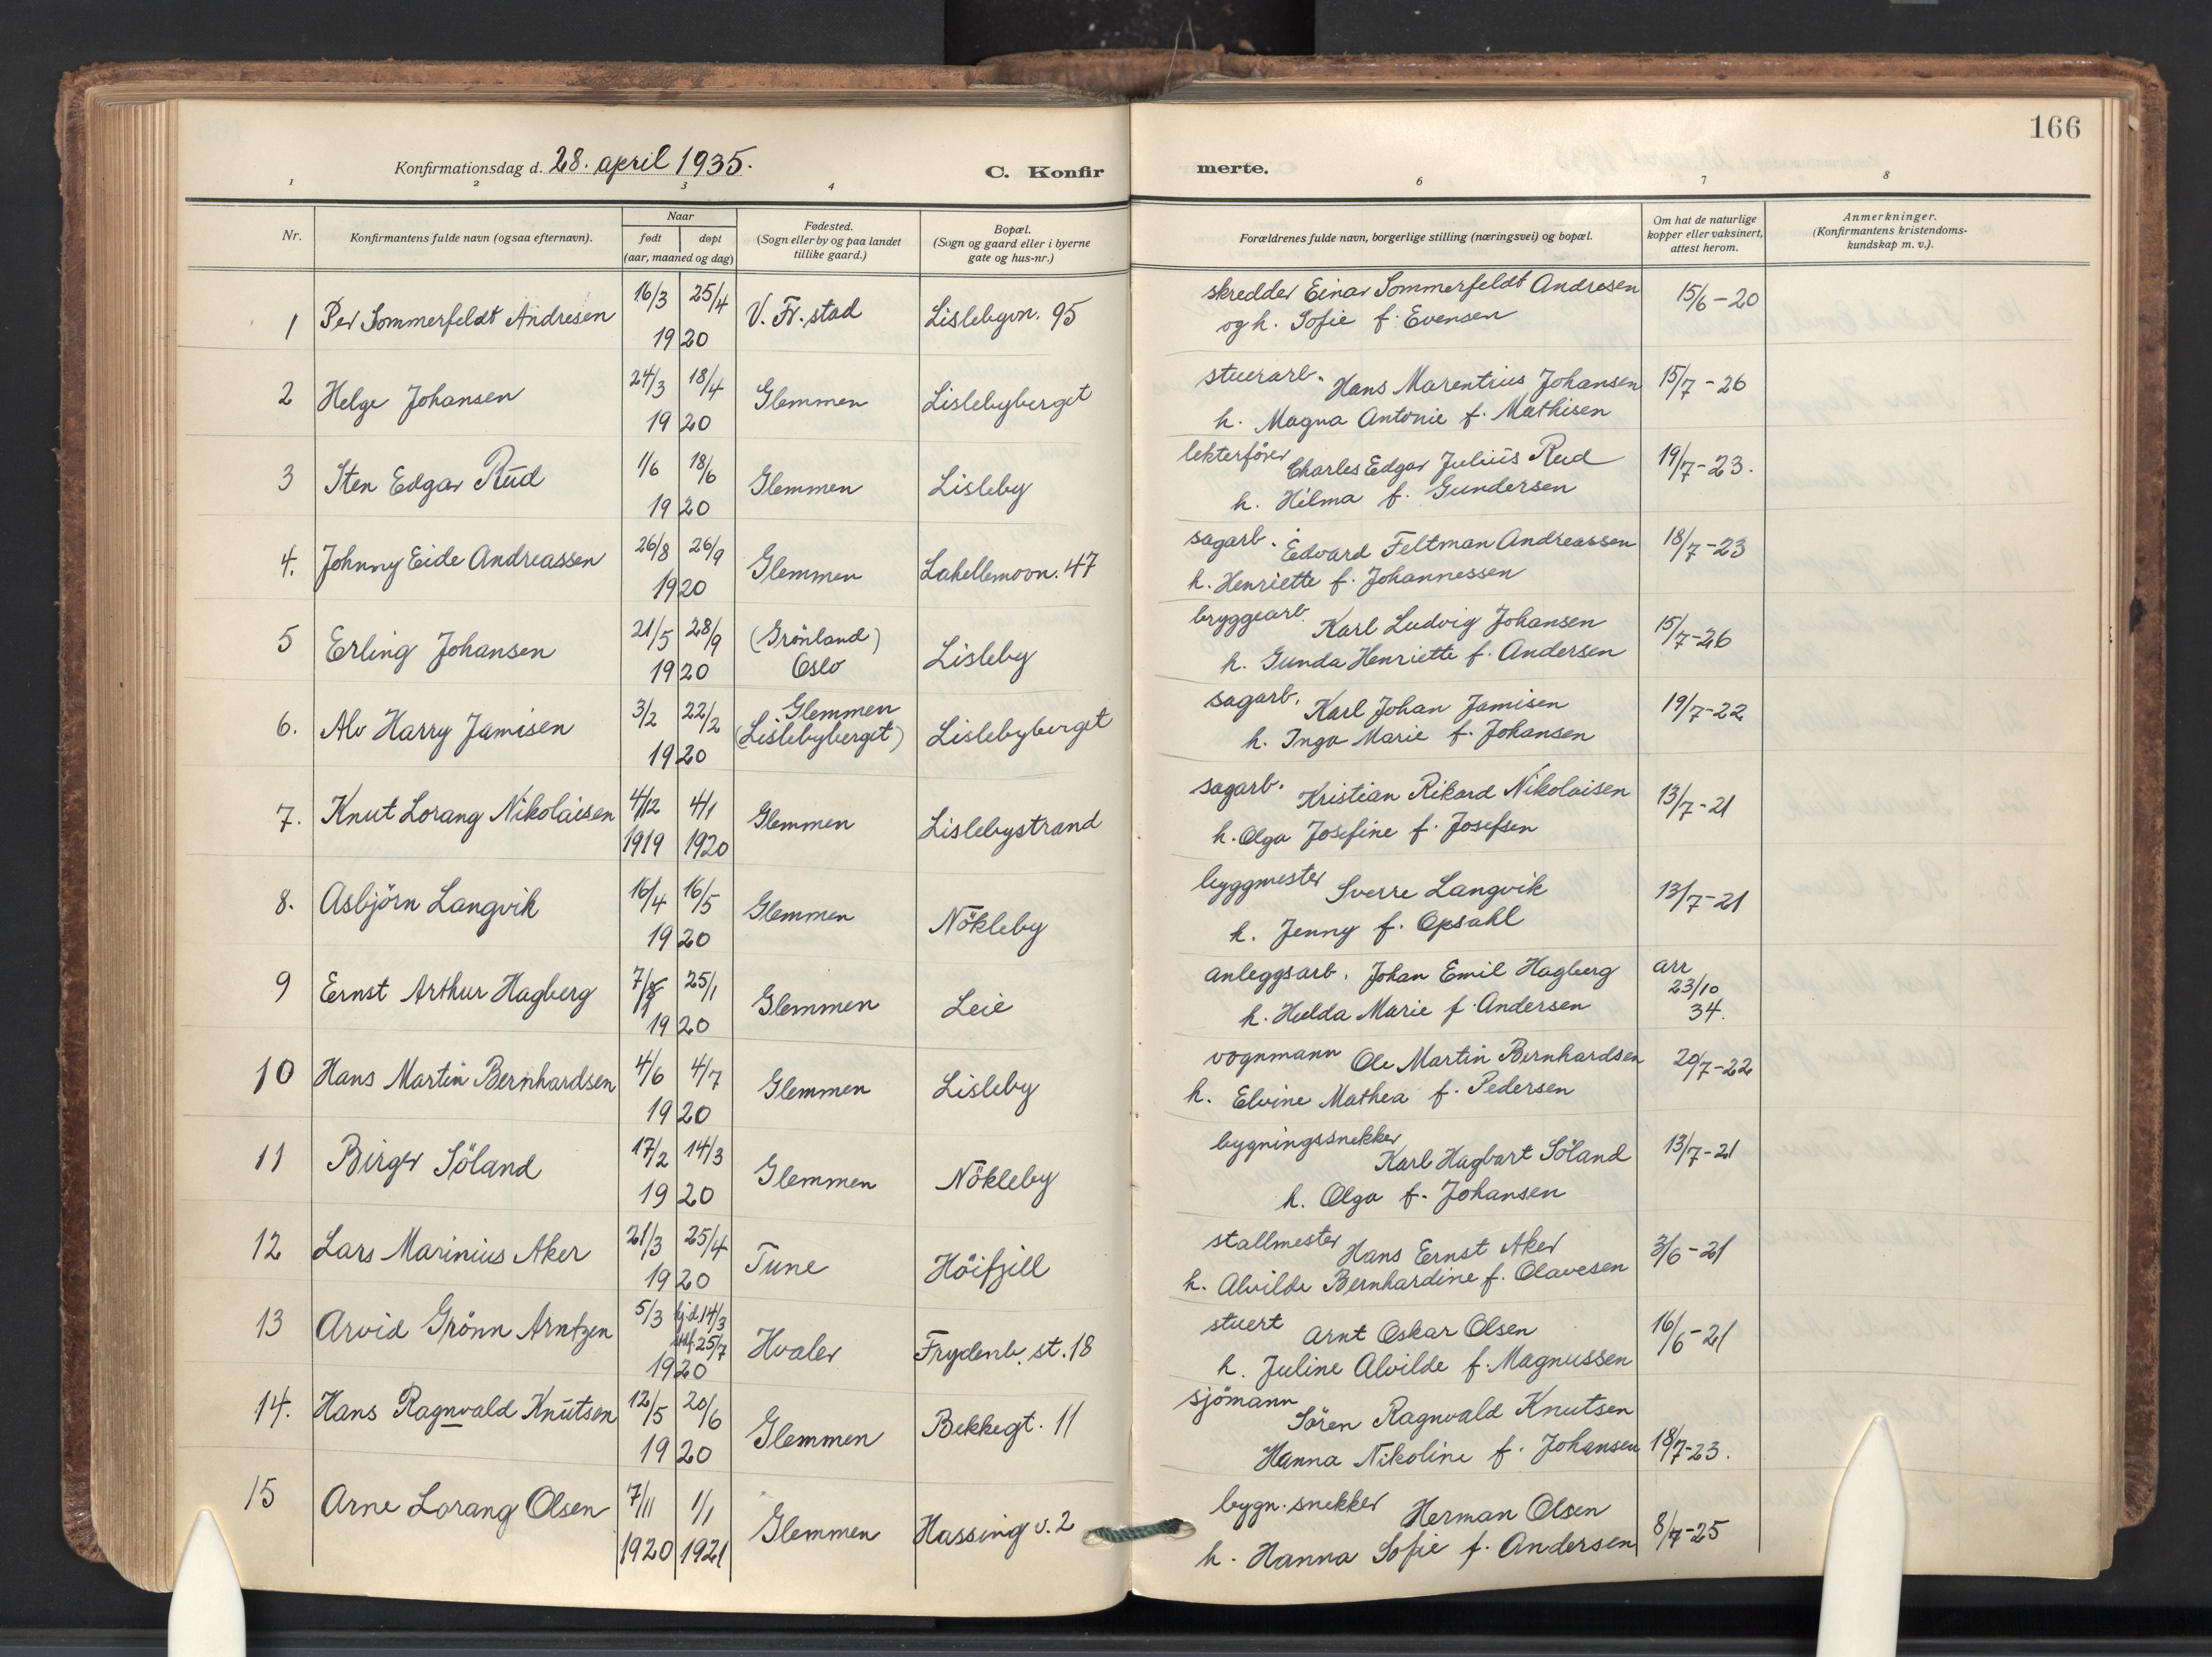 166
Konfirmationsdag d. 28. april 1935.
C. Konfirmerte.
1 2 3 4 6 7 8
Nr.
Konfirmantens fulde navn (ogsaa efternavn).
Naar
født døpt
(aar, maaned og dag)
Fødested.
(Sogn eller by og paa landet
tillike gaard.)
Bopæl.
(Sogn og gaard eller i byerne
gate og hus-nr.)
Forældrenes fulde navn, borgerlige stilling (næringsvei) og bopæl.
Om hat de naturlige
kopper eller vaksinert,
attest herom.
Anmerkninger.
(Konfirmantens kristendoms-
kundskap m. v.).
1 Per Sommerfeldt Andresen 16/3 25/4 1920 V. Fr. stad Lislebyvn. 95
skredder Einar Sommerfeldt Andresen 15/6-20
og h. Sofie f. Evensen
2 Helge Johansen 24/3 18/4 1920 Glemmen Lislebyberget
stuerarb. Hans Marentius Johansen 15/7-26
h. Magna Antonie f. Mathisen
3 Sten Edgar Rud 1/6 18/6 1920 Glemmen Lisleby
lekterförer Charles Edgar Julius Rud 19/7-23.
h. Hilma f. Gundersen
4. Johnny Eide Andreassen 26/8 26/9 1920 Glemmen Lahellemovn. 47
sagarb. Edvard Feltman Andreassen 18/7-23
h. Henriette f. Johannessen
5 Erling Johansen 21/5 28/9 1920 (Grönland) Oslo Lisleby
bryggearb. Karl Ludvig Johansen 15/7-26
h. Gunda Henriette f. Andersen
6. Alv Harry Jamisen 3/2 22/2 1920 Glemmen (Lislebyberget) Lislebyberget
sagarb. Karl Johan Jamisen 19/7-22
h. Inga Marie f. Johansen
7. Knut Lorang Nikolaisen 4/12 1919 4/1 1920 Glemmen Lislebystrand
sagarb. Kristian Rikard Nikolaisen 13/7-21
h. Olga Josefine f. Josefsen
8. Asbjörn Langvik 16/4 16/5 1920 Glemmen Nökleby
byggmester Sverre Langvik 13/7-21
h. Jenny f. Opsahl
9 Ernst Arthur Hagberg 7/1 25/1 1920 Glemmen Leie
anleggsarb. Johan Emil Hagberg arr 23/10 34.
h. Hulda Marie f. Andersen
10 Hans Martin Bernhardsen 4/6 4/7 1920 Glemmen Lisleby
vognmann Ole Martin Bernhardsen 20/7-22
h. Elvine Mathea f. Pedersen
11 Birger Söland 17/2 14/3 1920 Glemmen Nökleby
bygningssnekker Karl Hagbart Söland 13/7-21
h. Olga f. Johansen
12 Lars Marinius Aker 21/3 25/4 1920 Tune Höifjell
stallmester Hans Ernst Aker 3/6-21
h. Alvilde Bernhardine f. Olavesen
13 Arvid Grönn Arntzen 5/3 hjd 14/3 stdf. 25/7 1920 Hvaler Frydenb. st. 18
stuert Arnt Oskar Olsen 16/6-21
h. Juline Alvilde f. Magnussen
14. Hans Ragnvald Knutsen 12/5 20/6 1920 Glemmen Bekkegt. 11
sjömann Sören Ragnvald Knutsen
Hanna Nikoline f. Johansen 18/7-23.
15 Arne Lorang Olsen 7/11 1920 1/1 1921 Glemmen Hassing v. 2
bygn. snekker Herman Olsen
h. Hanna Sofie f. Andersen 8/7-25